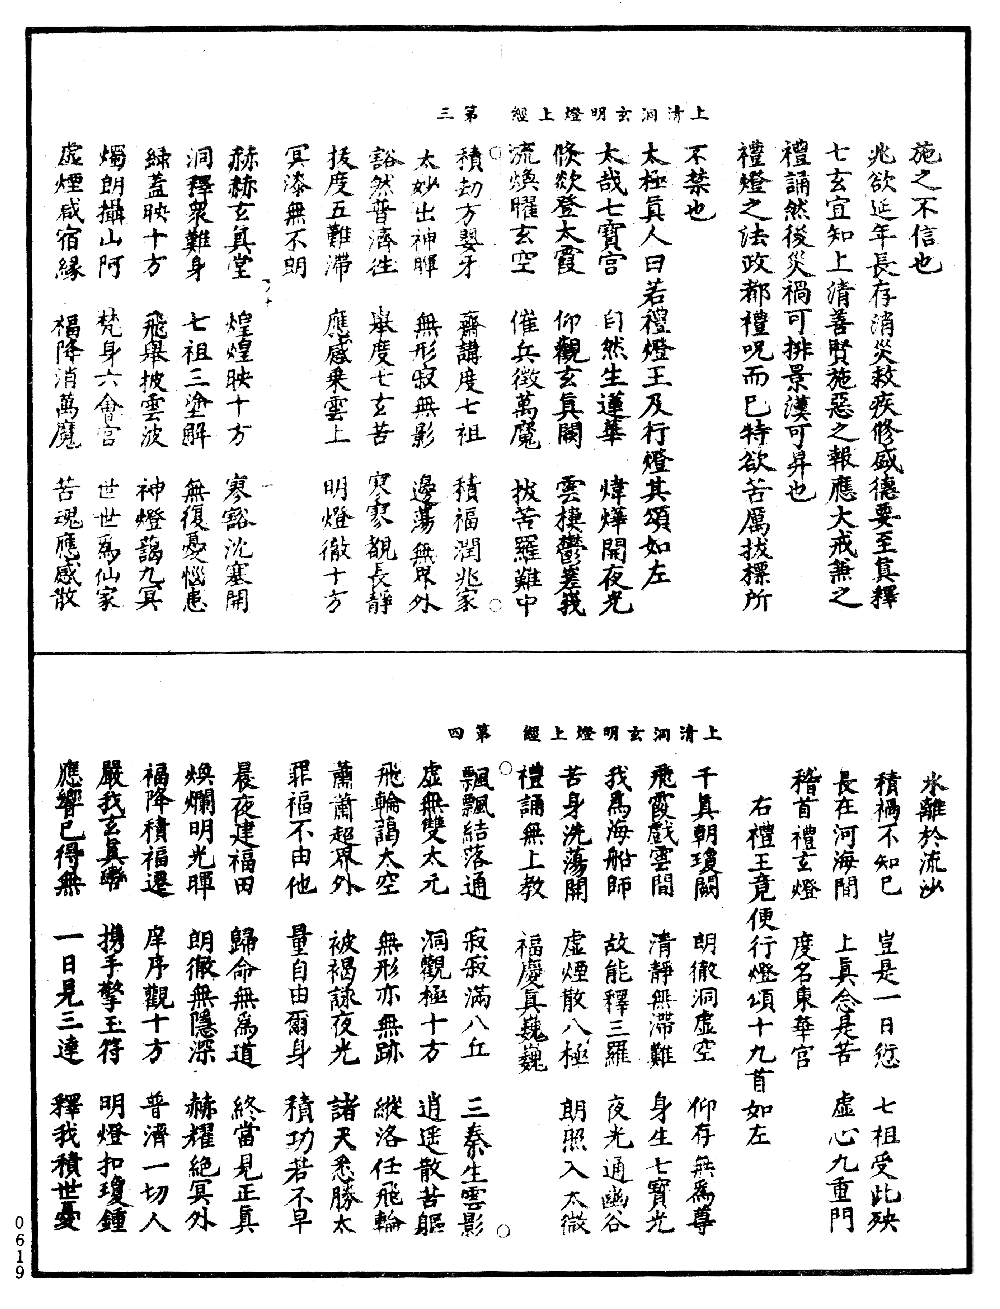 上清洞玄明燈上經　第三
施之不信也
兆欲延年長存消災救疾修盛德要至真釋
七玄宜知上清善賢施惡之報應大戒兼之
禮誦然後災禍可排景漢可昇也
禮燈之法政都禮呪而已特欲苦厲拔摽所
不禁也
太極真人曰若禮燈王及行燈其頌如左
太哉七寶宮　自然生蓮華　煒燁開夜光
倏欻登太霞　仰觀玄真闕　雲棲鬱嵳峩
流煥曜玄空　催兵徵萬魔　拔苦羅難中
積劫方嬰牙　齋講度七祖　積福潤兆家
太妙出神暉　無形寂無影　邊蕩無界外
谿然普濟徃　舉度七玄苦　寥寥覩長靜
拔度五難滯　應感乗雲上　明燈徹十方
冥漆無不朗
赫赫玄真堂　煌煌映十方　寥豁沈塞開
洞釋衆難身　七祖三塗解　無復憂惱患
緑蓋映十方　飛舉披雲波　神燈藹九冥
燭朗攝山阿　梵身六會宮　世世爲仙家
虚煙咸宿縁　福降消萬魔　苦魂應感散
上清洞玄明燈上經　第四
氷離於流沙
積禍不知已　豈是一日愆　七祖受此殃
長在河海間　上真念是苦　虚心九重門
稽首禮玄燈　度名東華宮
右禮王竟便行燈頌十九首如左
千真朝瓊闕　朗徹洞虚空　仰存無爲尊
飛霞戲雲間　清靜無滯難　身生七寶光
我爲海船師　故能釋三羅　夜光通幽谷
苦身洗蕩開　虚煙散八極　朗照入太微
禮誦無上教　福慶真巍巍
飄飄結落通　寂寂滿八丘　三秦生雲影
虚無雙太元　洞觀極十方　逍遥散苦軀
飛輪藹太空　無形亦無跡　縱洛任飛輪
蕭蕭超界外　被褐詠夜光　諸天悉勝太
罪福不由他　量自由爾身　積功若不早
晨夜建福田　歸命無爲道　終當見正真
煥爛明光暉　朗徹無隱深　赫耀絶冥外
福降積福還　庠序觀十方　普濟一切人
嚴我玄真轡　携手擎玉符　明燈扣瓊鍾
應響已得無　一日見三達　釋我積世憂
0619